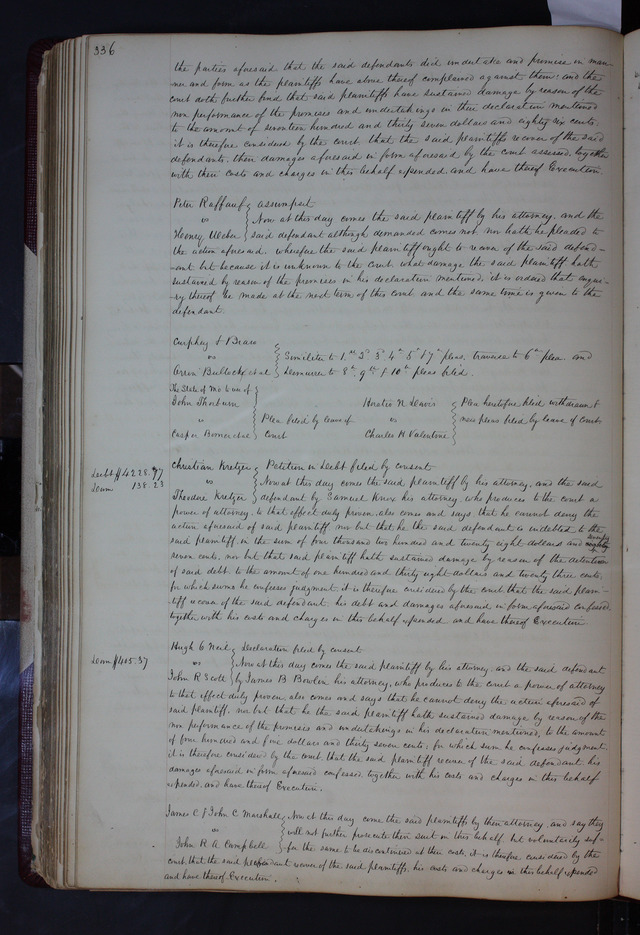 336
the parties aforesaid that the said defendants did undertake and promise in man-
ner and form as the plaintiffs have above thereof complained against them: and the
court doth further find that said plaintiffs have sustained damage by reason of the
non performance of the promises and undertakings in their declaration mentioned
to the amount of seventeen hundred and thirty seven dollars and eighty six cents.
it is therefore considered by the court that the said plaintiffs recover of the said
defendants, their damages aforesaid in form aforesaid by the court assessed, together
with their costs and charges in this behalf expended and have thereof Execution
Peter Raffauf } assumpsit
vs } Now at this day comes the said plaintiff by his attorney, and the
Henry Weber } said defendant although demanded comes not nor hath he pleaded to
the action aforesaid. wherefore the said plaintiff ought to recover of the said defend-
-ant but because it is unknown to the court what damage the said plaintiff hath
sustained by reason of the premises in his declaration mentioned, it is ordered that enqui-
-ry thereof be made at the next term of this court and the same time is given to the
defendant.
Curphey & Brace
vs } Similiter to 1st 2d 3d 4th 5th & 7th pleas, traverse to 6th plea. and
Orrin Bullock et al } Demurrer to 8th, 9th & 10th pleas filed.
The State of Mo to use of
John Thorburn } Horatio N Davis } Plea heretofore filed withdrawn &
vs } Plea filed by leave of vs } pleas filed by leave of Court
Casper et al } Court Charles H Valentine
Debt $4228.97 Christian Kretzer } Petition in Debt filed by consent
Dam 138.23 vs } Now at this day comes the said plaintiff by his attorney, and the said
Theodore Kretzer } defendant by Samuel Knox his attorney who produces to the court a
power of attorney, to that effect duly proven, also comes and says that he cannot deny the
action aforesaid of said plaintiff nor but that he the said defendant is indebted to the
said plaintiff in the sum of four thousand two hundred and twenty eight dollars and ninety
seven cents, nor but that said plaintiff hath sustained damage by reason of the detention
of said debt, to the amount of one hundred and thirty eight dollars and twenty three cents.
for which sums he confesses judgment. it is therefore considered by the court that the said plain-
-tiff recover of the said defendant, his debt and damages aforesaid in form aforesaid confessed
together with his costs and charges in this behalf expended and have thereof Execution
Hugh C } Declaration filed by consent
Dam $405.37 vs } Now at this day comes the said plaintiff by his attorney, and the said defendant
John R Scott } by James B Bowlin his attorney, who produces to the court a power of attorney
to that effect duly proven, also comes and says that he cannot deny the action aforesaid of
said plaintiff, nor but that he the said plaintiff hath sustained damage by reason of the
non performance of the promises and undertakings in his declaration mentioned, to the amount
of four hundred and five dollars and thirty seven cents; for which sum he confesses judgment.
it is therefore considered by the court that the said plaintiff recover of the said defendant his
damages aforesaid in form aforesaid confessed, together with his costs and charges in this behalf
expended, and have thereof Execution.
James C & John C Marshall } Now at this day come the said plaintiffs by their attorney, and say they
vs } will not further prosecute their suit in this behalf but voluntarily suf-
John R A Campbell } -fer the same to be discontinued at their costs, it is therefore considered by the
court, that the said defendant recover of the said plaintiffs, his costs and charges in this behalf expended
and have thereof Execution.